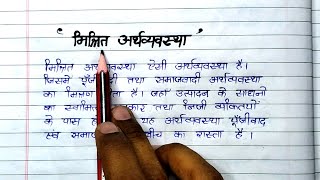 " मिश्रित अर्थव्यवस्था "
मिश्रित अर्थव्यवस्था ऐसी अर्थव्यवस्था है।
जिसमे पूँजीवादी तथा समाजवादी अर्थव्यवस्था
का मिश्रण होता है। जहां उत्पादन के साधनों
का स्वामित्व सरकार तथा निजी व्यक्तियों
के पास यह अर्थव्यवस्था पूँजीवाद
एवं का रास्ता है।